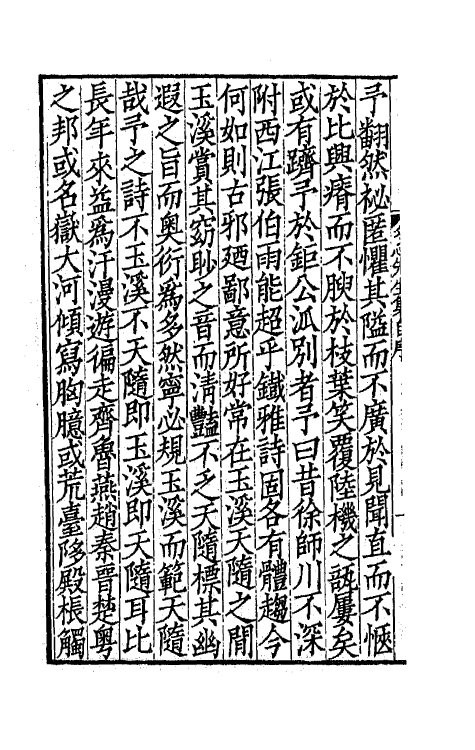 予翻然柲匿懼其隘而不廣於見聞直而不愜
於比興瘠而不腴於枝葉笑覆陸機之瓿屢矣
或有躋予於鉅公派別者予曰昔徐師川不深
附西江張伯雨能超乎鐵雅詩固各有體趨今
何如則古邪廼鄙意所好常在玉溪天隨之間
玉溪賞其窈眇之音而清豔不乏天隨標其幽
遐之旨而奥衍爲多然寧必規玉溪而範天隨
哉予之詩不玉溪不天隨即玉溪即天隨耳比
長年來益爲汗漫遊徧走齊魯燕趙秦晉楚粵
之邦或名嶽大河傾寫胸臆或荒臺陊殿棖觸